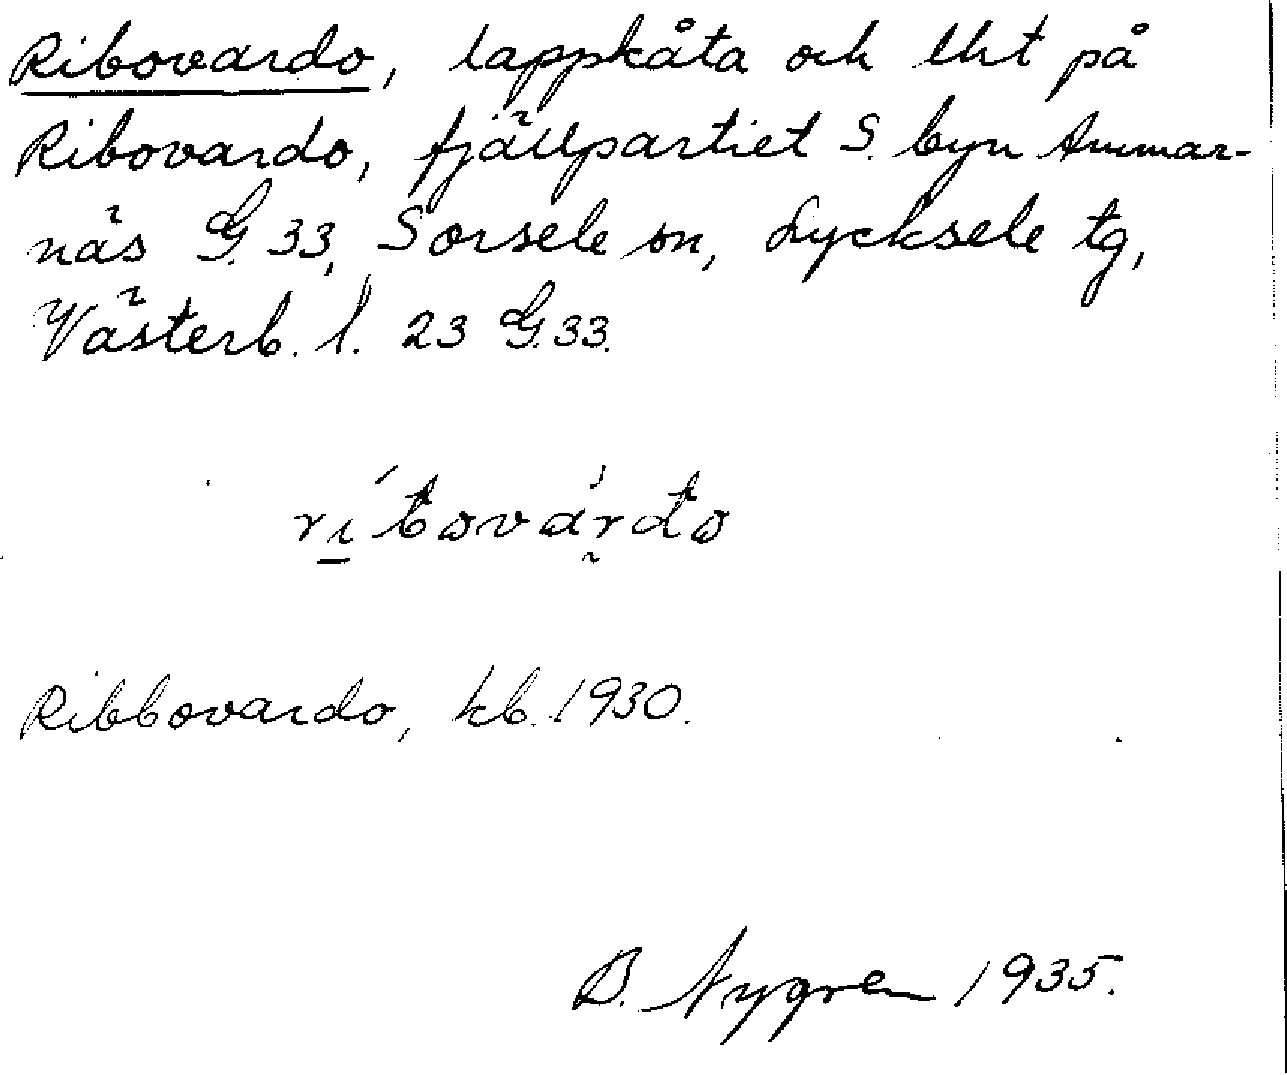 Ribovardo, lappkåta och lht på
Ribovardo, fjällpartiet S. byn Ammar-
näs G. 33, Sorsele sn, Lycksele tg,
Västerb. l. 23 G. 33.
Ribbovardo, kb. 1930.
B. Nygren 1935.